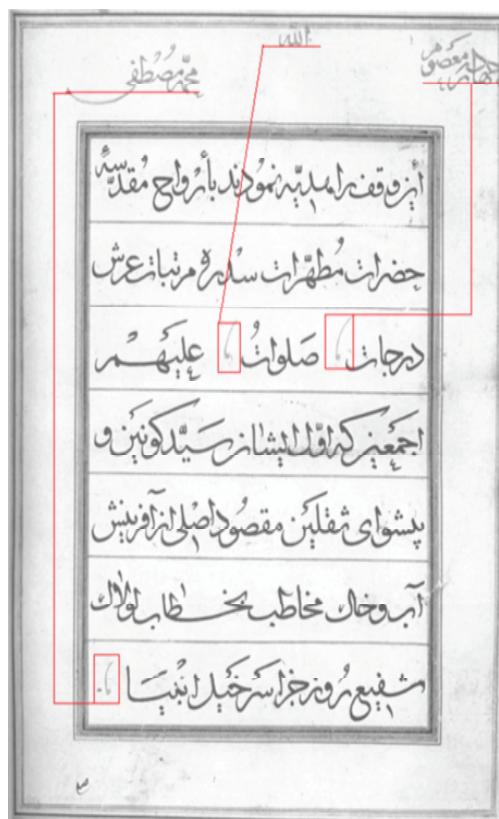 الله
چهارده معصوم
محمد مصطفی
این وقف را هدیه نمودند بأرواح مقدسهٔ
حضرات مطهرات سدره مرتبات عرش
درجات صلواتُ علیهم
اجمعین که اول ایشان سید کونین و
پیشوای ثقلین مقصود اصلی از آفرینش
آب و خاك مخاطب بخطاب لولاك
شفیع روز جزا سرخیل انبیا